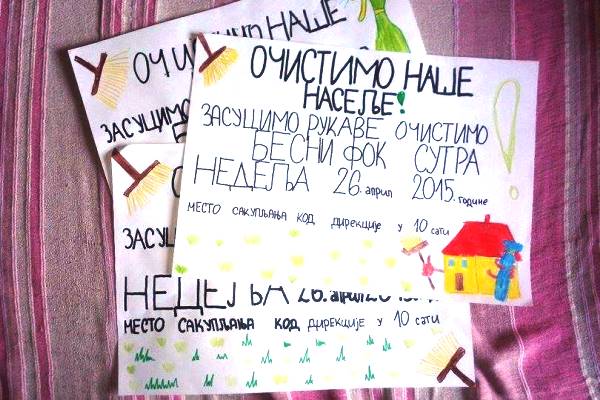 ОЧИСТИМО НАШЕ
НАСЕЉЕ!
ЗАСУЦИМО РУКАВЕ ОЧИСТИМО
БЕСНИ ФОК СУТРА
НЕДЕЉА 26. април 2015. године
МЕСТО САКУПЉАЊА КОД ДИРЕКЦИЈЕ У 10 САТИ
НАШЕ
ЗАСУЦИМО
НЕДЕЉА 26. април
МЕСТО САКУПЉАЊА КОД ДИРЕКЦИЈЕ У 10 САТИ